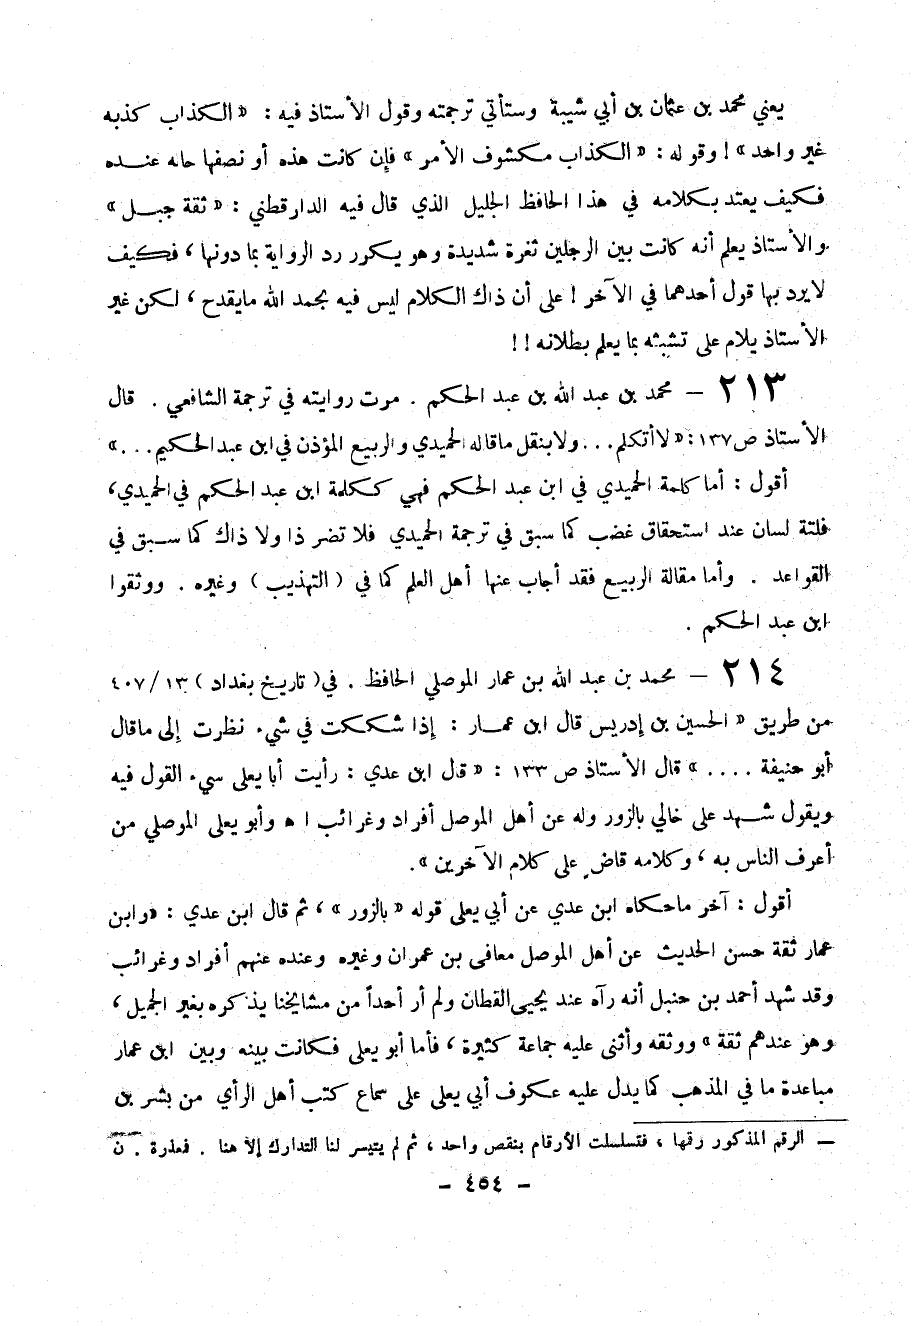 يعني محمد بن عثمان بن أبي شيبة وستأتي ترجمته وقول الأستاذ فيه : « الكذاب كذبه
غير واحد » ! وقوله : « الكذاب مكشوف الأمر » فإن كانت هذه أو نصفها حاله عنده
فكيف يعتد بكلامه في هذا الحافظ الجليل الذي قال فيه الدارقطني : « ثقة جبل »
والأستاذ يعلم أنه كانت بين الرجلين ثغرة شديدة وهو يكرر رد الرواية بما دونها ، فكيف
لا يرد بها قول أحدهما في الآخر ! على أن ذاك الكلام ليس فيه بحمد الله مايقدح ، لكن غير
الأستاذ يلام على تشبثه بما يعلم بطلانه ! !
٢١٣ – محمد بن عبد الله بن عبد الحكم . مرت روايته في ترجمة الشافعي . قال
الأستاذ ص١٣٧: « لاأتكلم... ولابنقل ماقاله الحميدي والربيع المؤذن في ابن عبدالحكيم... »
أقول : أما كلمة الحميدي في ابن عبد الحكم فهي ككلمة ابن عبد الحكم في الحميدي،
فلتة لسان عند استحقاق غضب كما سبق في ترجمة الحميدي فلا تضر ذا ولا ذاك كما سبق في
القواعد . وأما مقالة الربيع فقد أجاب عنها أهل العلم كما في ( التهذيب ) وغيره . ووثقوا
ابن عبد الحكم .
٢١٤ – محمد بن عبد الله بن عمار الموصلي الحافظ . في ( تاريخ بغداد ) ١٣/ ٤٠٧
من طريق « الحسين بن إدريس قال ابن عمار : إذا شككت في شيء نظرت إلى ماقال
أبو حنيفة .... » قال الأستاذ ص ١٣٣ : « قال ابن عدي : رأيت أبا يعلى سيء القول فيه
ويقول شهد على خالي بالزور وله عن أهل الموصل أفراد وغرائب ا ه وأبو يعلى الموصلي من
أعرف الناس به ، وكلامه قاض على كلام الآخرين ».
أقول : آخر ماحكاه ابن عدي عن أبي يعلى قوله « بالزور » ، ثم قال ابن عدي : «وابن
عمار ثقة حسن الحديث عن أهل الموصل معافى بن عمران وغيره وعنده عنهم أفراد وغرائب
وقد شهد أحمد بن حنبل أنه رآه عند يحيى القطان ولم أر أحداً من مشايخنا يذكره بغير الجميل ،
وهو عندهم ثقة » ووثقه وأثنى عليه جماعة كثيرة ، فأما أبو يعلى فكانت بينه وبين ابن عمار
مباعدة ما في المذهب كما يدل عليه عكوف أبي يعلى على سماع كتب أهل الرأي من بشر بن
ــ الرقم المذكور رقمها ، فتسلسلت الأرقام بنقص واحد ، ثم لم يتيسر لنا التدارك إلا هنا . فمعذرة . ن
– ٤٥٤ –